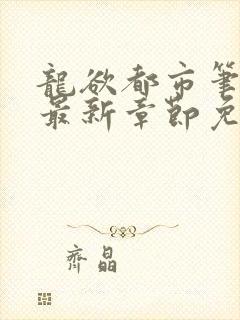 龍欲都市筆
最新章節免
齊晶